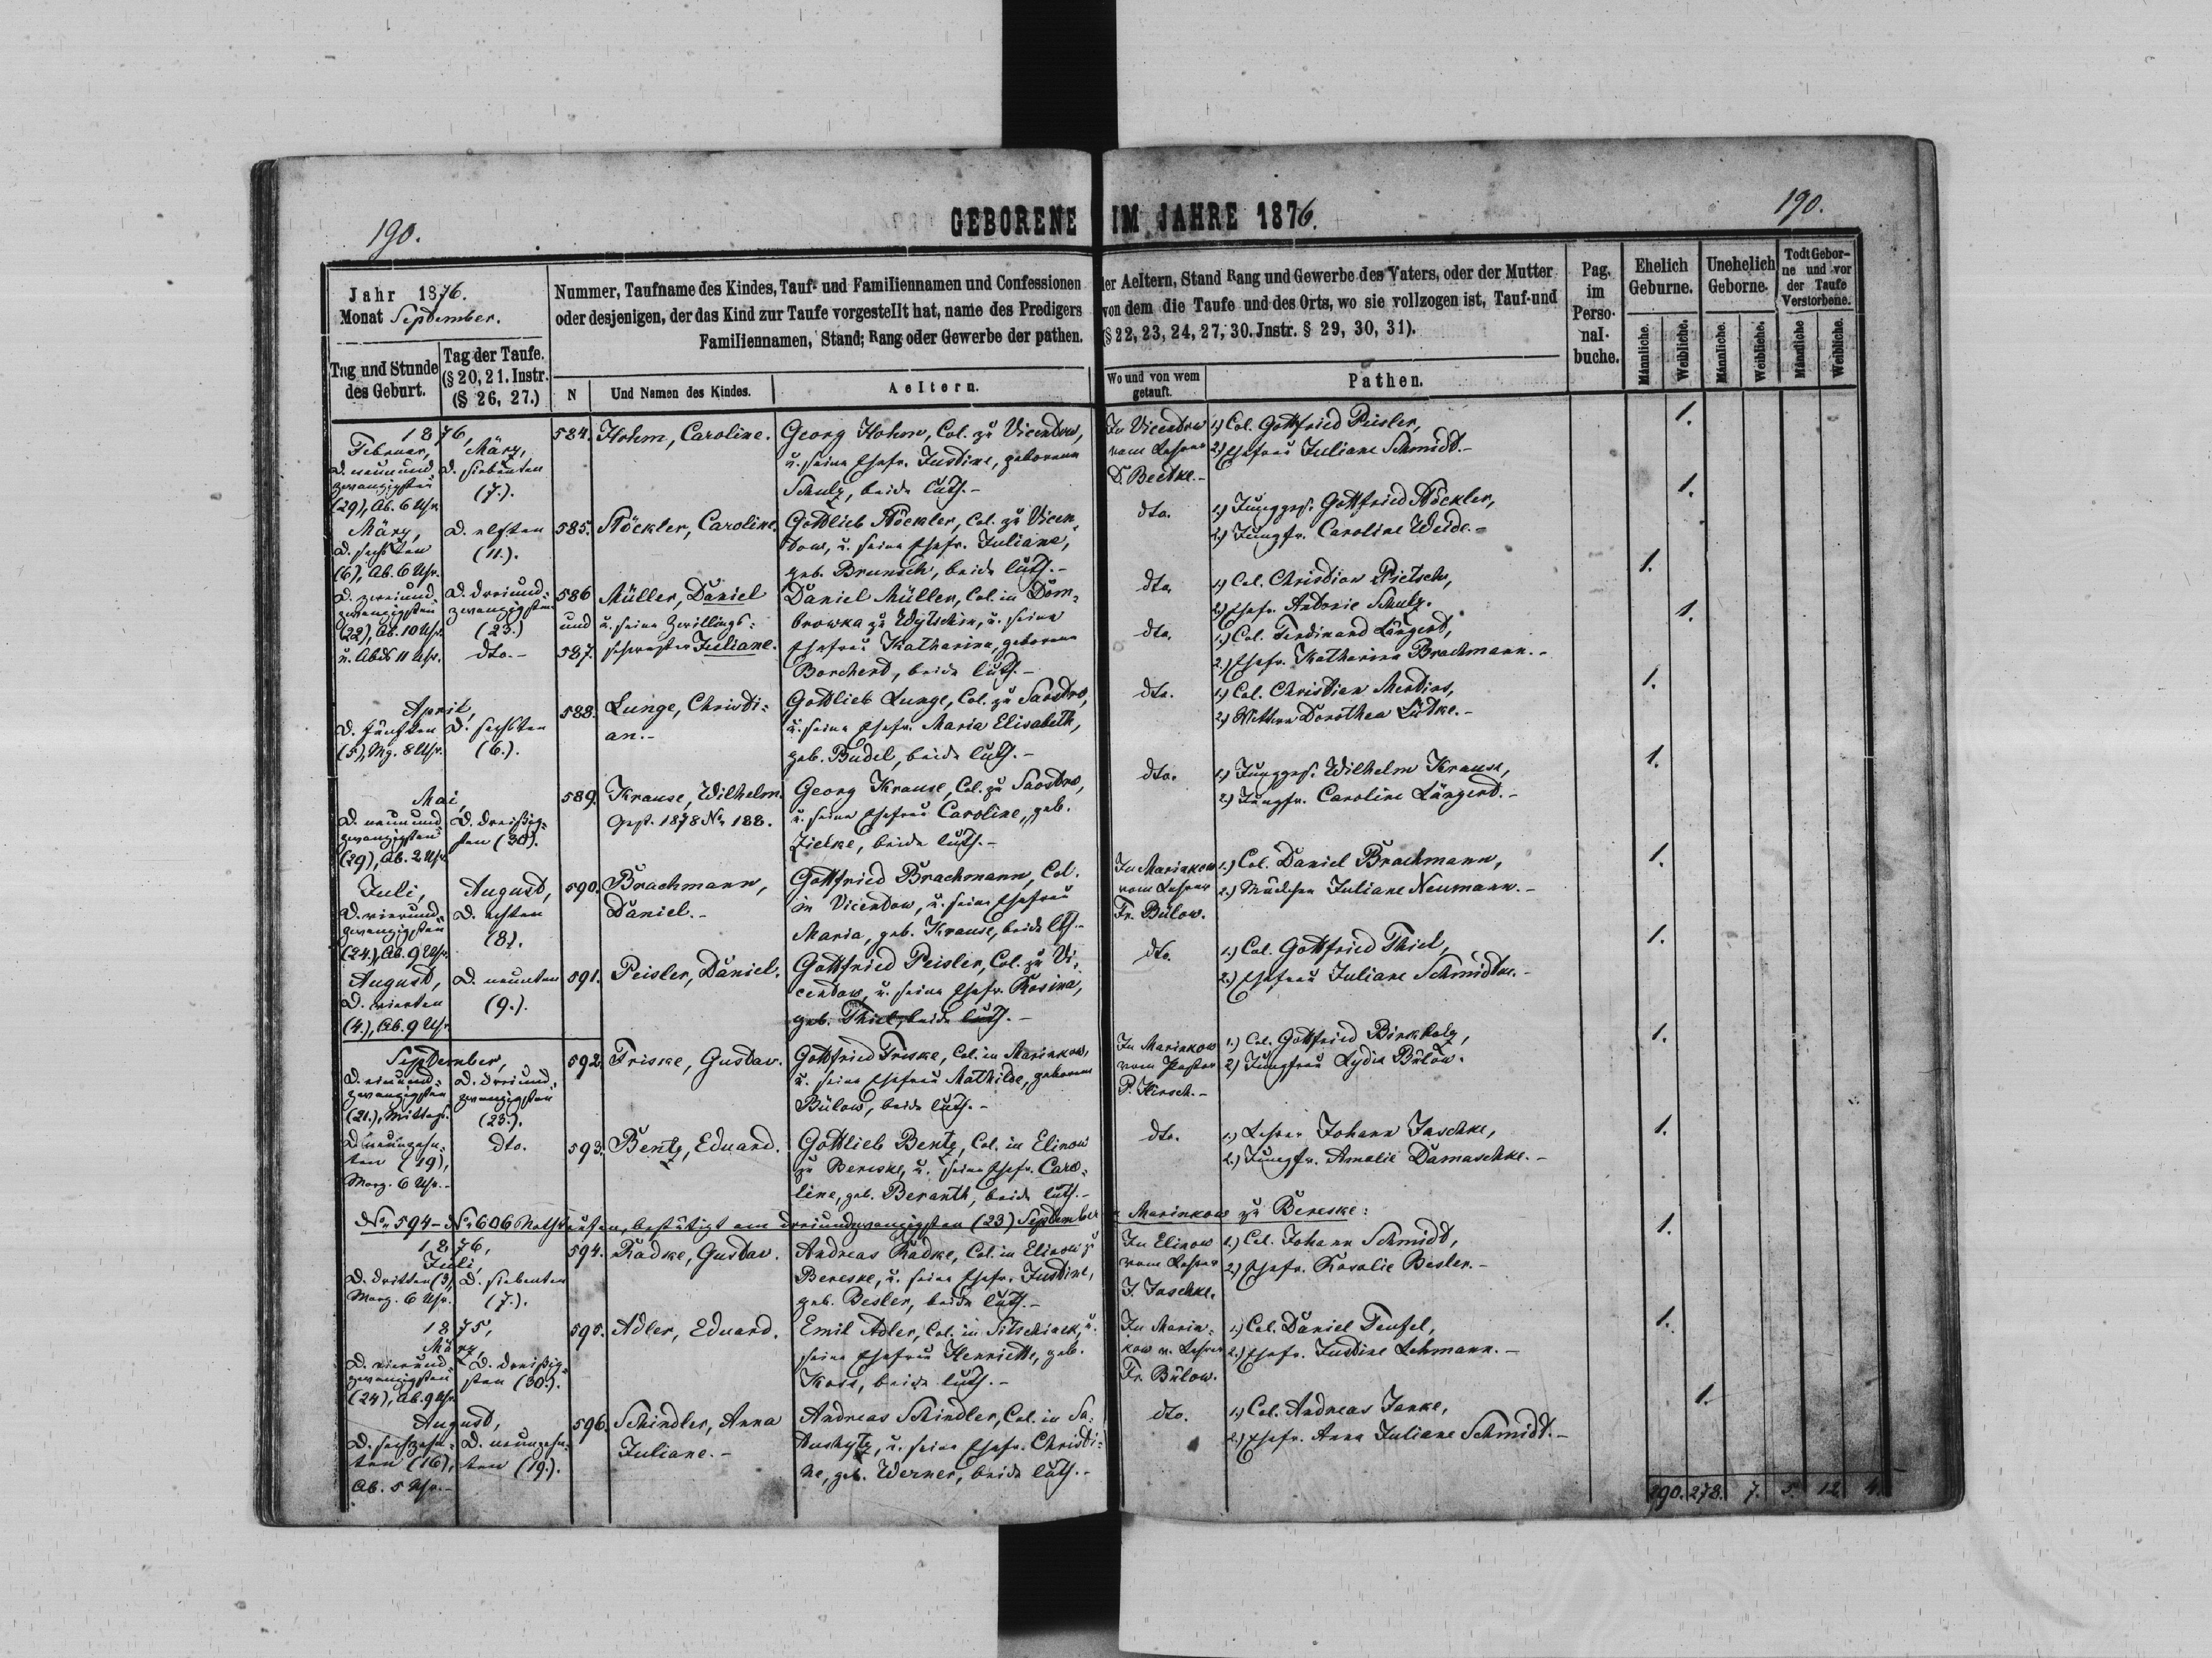 190.
190.
GEBORENE IM JAHRE 1876.
Jahr 1876.
Monat September.
Nummer, Taufname des Kindes, Tauf- und Familiennamen und Confessionen der Aeltern, Stand Rang und Gewerbe des Vaters, oder der Mutter
oder desjenigen, der das Kind zur Taufe vorgestellt hat, name des Predigers von dem die Taufe und des Orts, wo sie vollzogen ist, Tauf-und
Familiennamen, Stand; Rang oder Gewerbe der pathen. (§ 22, 23, 24, 27, 30. Jnstr. § 29, 30, 31).
Tag und Stunde
des Geburt.
Tag der Taufe.
(§ 20, 21. Instr.
(§ 26, 27.)
N
Und Namen des Kindes.
Aeltern.
Wo und von wem
getauft.
Pathen.
Pag.
im
Perso-
nal-
buche.
Ehelich
Geburne.
Unehelich
Geborne.
Todt Gebor-
ne und vor
der Taufe
Verstorbene.
Männliche.
Weibliche.
Männliche.
Weibliche.
Mändliche
Weibliche.
1876,
Februar,
D. neunund
zwanzigsten
(29), Ab. 6 Uhr.
März,
D. siebenten
(7.).
584. Hohm, Caroline.
Georg Hohm, Col. zu Vicentow,
u. seine Ehefr. Justine, geborene
Schulz, beide luth.-
In Vicentow
vom Lehrer
D. Beitke.-
1.) Col. Gottfried Peisler,
2.) Ehefrau Juliane Schmidt.-
1.
März,
D. sechsten
(6), Ab. 6 Uhr.
D. elften
(11.).
585. Stöckler, Caroline.
Gottlieb Stöckler, Col. zu Vicen-
tow, u. seine Ehefr. Juliane,
geb. Brunsch, beide luth.-
dto.
1.) Junggs. Gottfried Stöckler,
2.) Jungfr. Caroline Weide.-
1.
D. zweiund-
zwanzigsten
(22), Ab. 10 Uhr.
u. Abds 11 Uhr.
D. dreiund-
zwanzigsten
(23.)
dto.-
586
und
587.
Müller, Daniel
u. seine Zwillings-
schwester Juliane.
Daniel Müller, Col. in Dom-
browka zu Wytschin, u. seine
Ehefrau Katharina, geborene
Borchert, beide luth.-
dto.
1.) Col. Christian Pietsch,
2.) Ehefr. Antonie Schulz.
1.
dto.
1.) Col. Ferdinand Längert,
2.) Ehefr. Katharina Brachmann.-
1.
April,
D. fünften
(5), Mg. 8 Uhr.
D. sechsten
(6.).
588. Lunge, Christi-
an.-
Gottlieb Lunge, Col. zu Saostro,
u. seine Ehefr. Maria Elisabeth,
geb. Budel, beide luth.-
dto.
1.) Col. Christian Mentios,
2.) Wittwe Dorothea Lüdke.-
1.
Mai,
D. neunund
zwanzigsten
(29), Ab. 2 Uhr.
D. dreißig-
sten (30).
589. Krause, Wilhelm.
Gest. 1878 No 188.
Georg Krause, Col. zu Saostro,
u. seine Ehefrau Caroline, geb.
Zielke, beide luth.-
dto.
1.) Junggs. Wilhelm Krause,
2.) Jungfr. Caroline Längert.-
1.
Juli,
D. vierund-
zwanzigsten
(24.), Ab. 9 Uhr.
August,
D. achten
(8).
590. Brachmann,
Daniel.-
Gottfried Brachmann, Col.
in Vicentow, u. seine Ehefrau
Maria, geb. Krause, beide lth.-
In Marinkow
vom Lehrer
Fr. Bülow.
1.) Col. Daniel Brachmann,
2.) Mädchen Juliane Neumann.-
1.
August,
D. vierten
(4.), Ab. 9 Uhr.
D. neunten
(9.).
591. Peisler, Daniel.
Gottfried Peisler, Col. zu Vi-
centow, u. seine Ehefr. Rosina,
geb. Thiel, beide luth.-
dto.
1.) Col. Gottfried Thiel,
2.) Ehefrau Juliane Schmidtke.-
1.
September,
D. einund-
zwanzigsten
(21.), Mittags.
D. dreiund-
zwanzigsten
(23.).
592. Friske, Gustav.
Gottfried Friske, Col. in Marinkow,
u. seine Ehefrau Mathilde, geborene
Bülow, beide luth.-
In Marinkow
vom Pastor
P. Kersch.-
1.) Col. Gottfried Birkholz,
2.) Jungfrau Lydia Bülow.
1.
D. neunzehn-
ten (19),
Morg. 6 Uhr.-
dto.
593. Bentz, Eduard.
Gottlieb Bentz, Col. in Elinow
zu Bereske, u. seine Ehefr. Caro-
line, geb. Beranth, beide luth.-
dto.
1.) Lehrer Johann Jaschke,
2.) Jungfr. Amalie Damaschke.-
1.
No 594 - No 606 Nothtaufen, bestätigt am dreiundzwanzigsten (23) September in Marinkow zu Bereske:
1876,
Juli,
D. dritten (3),
Morg. 6 Uhr.
D. siebenten
(7.).
594. Radke, Gustav.
Andreas Radke, Col. in Elinow z
Bereske, u. seine Ehefr. Justine,
geb. Besler, beide luth.-
In Elinow
vom Lehrer
J. Jaschke.
1.) Col. Johann Schmidt,
2.) Ehefr. Rosalie Besler.-
1.
1875,
März,
D. vierund-
zwanzigsten
(24), Ab. 9 Uhr.
D. dreißig-
sten (30.).
595. Adler, Eduard.
Emil Adler, Col. in Sitschiask, u.
seine Ehefrau Henriette, geb.
Koss, beide luth.-
In Marin-
kow v. Lehrer
Fr. Bülow.
1.) Col. Daniel Teufel,
2.) Ehefr. Justine Lehmann.-
1.
August,
D. sechzehn-
ten (16),
Ab. 5 Uhr.-
D. neunzehn-
ten (19.).
596. Schindler, Anna
Juliane.-
Andreas Schindler, Col. in Sa-
, u. seine Ehefr. Christi-
ne, geb. Werner, beide luth.-
dto.
1.) Col. Andreas Janke,
2.) Ehefr. Anna Juliane Schmidt.-
1.
290. 278. 7. 5. 12. 4.